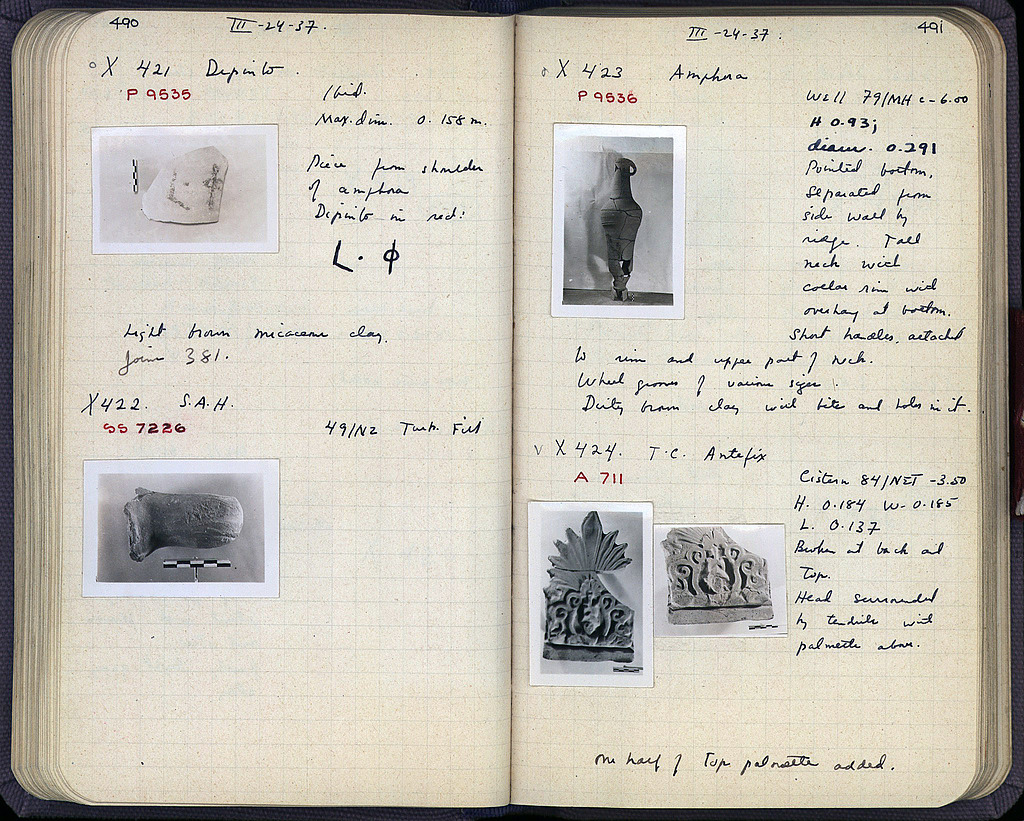 490
III -24-37.
X 421 Dipinto.
P 9535
Ibid.
Max. dim. 0.158 m.
Piece from shoulder
of amphora
Dipinto in red:
L. ϕ
Light brown micaceous clay.
Joins 381.
X 422. S.A.H.
SS 7226
49/NZ Turk. Fill
491
III -24-37.
X 423 Amphora
P 9536
Well 79/MH c -6.00
H 0.93;
diam. 0.291
Pointed bottom,
separated from
side wall by
ridge. Tall
neck with
collar rim with
overhang at bottom.
Short handles, attached
to rim and upper part of neck.
Wheel grooves of various sizes.
Dirty brown clay with bits and holes in it.
X 424. T.C. Antefix
A 711
Cistern 84/NΣT -3.50
H. 0.184 W- 0.185
L. 0.137
Broken at back and
top.
Head surrounded
by tendrils with
palmette above.
One half of top palmette added.